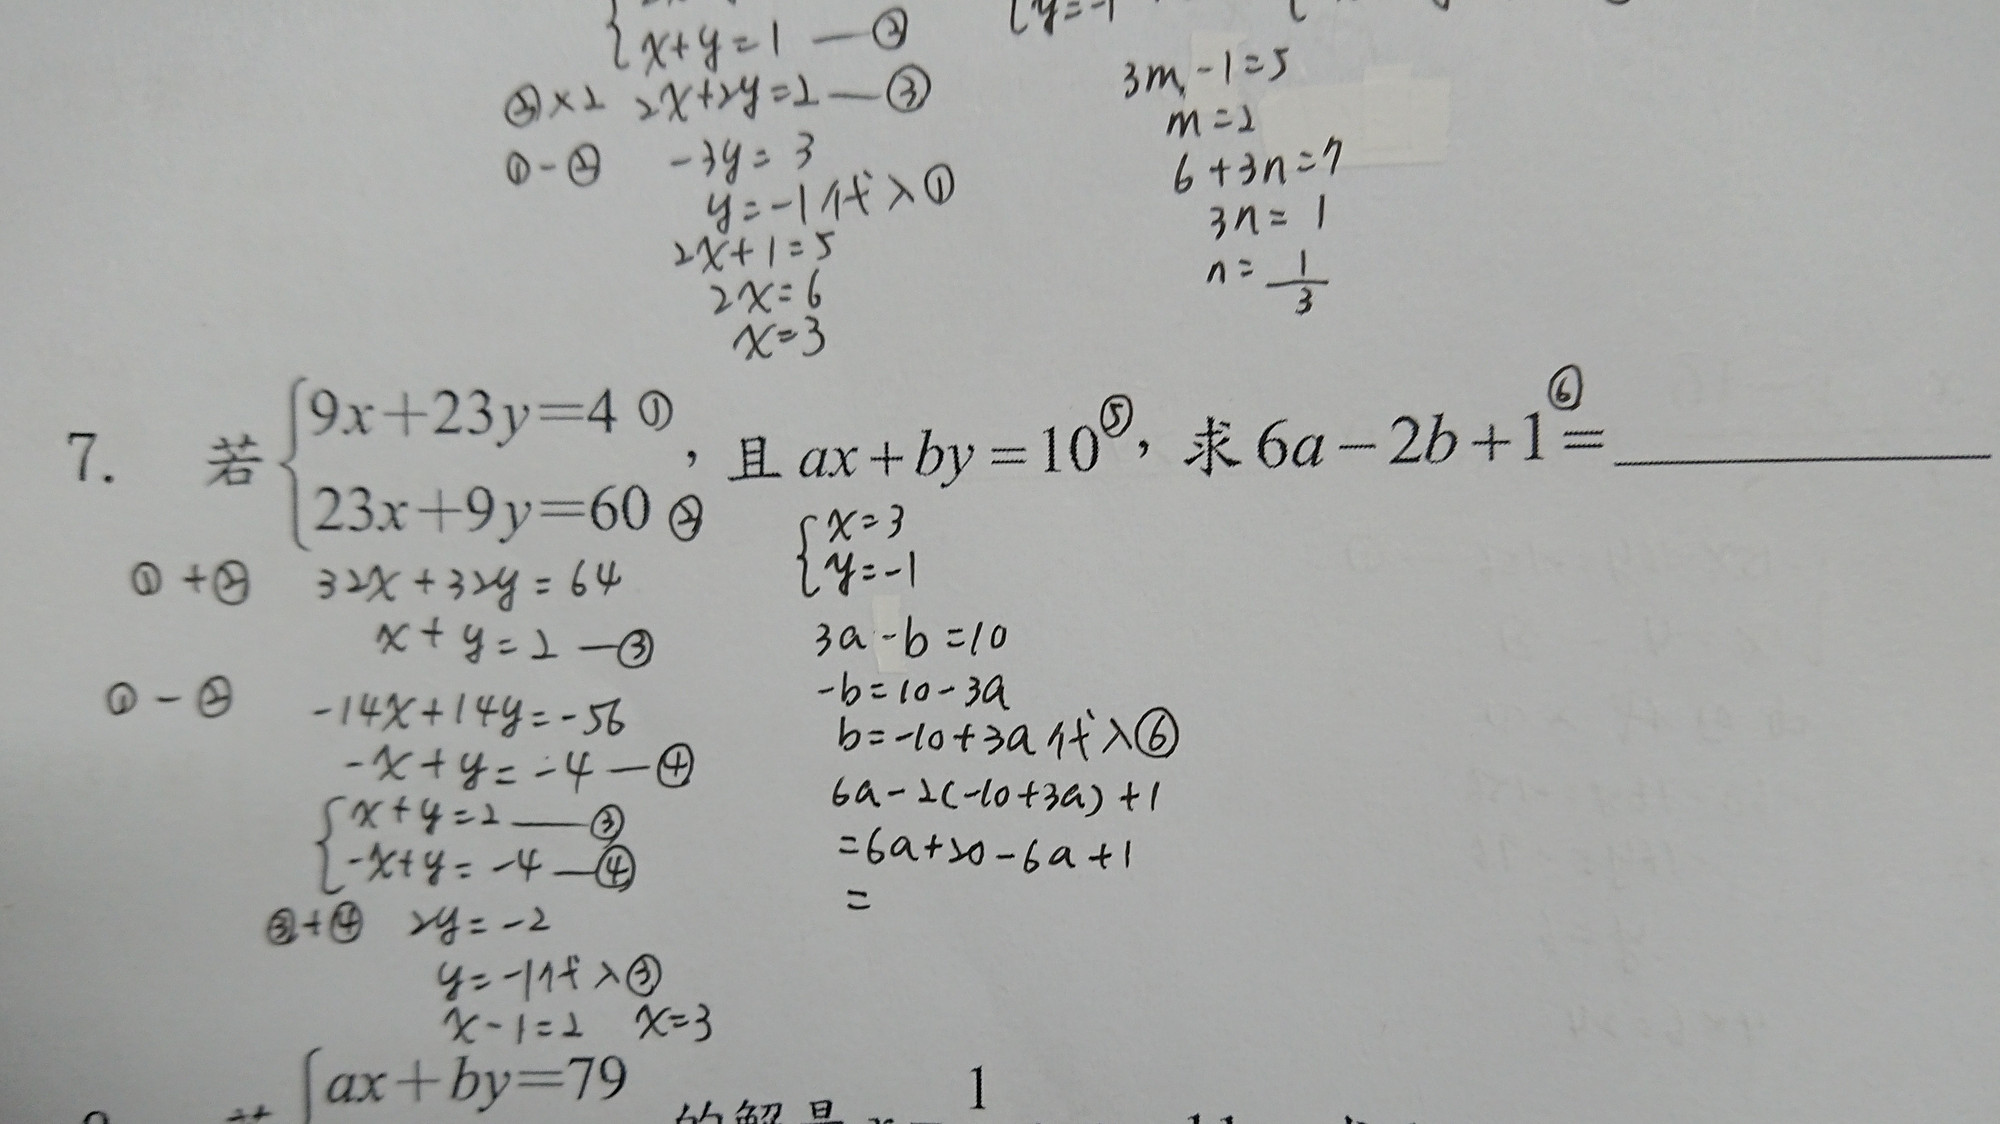 x+y=1 — ②
②×2 2x+2y=2 — ③
①-② -3y=3
y=-1代入①
2x+1=5
2x=6
x=3
y=-1
3m-1=5
m=2
6+3n=7
3n=1
n=1/3
7. 若{9x+23y=4 ①
23x+9y=60 ②
,且ax+by=10⑤,求6a-2b+1⑥=
①+② 32x+32y=64
x+y=2 — ③
①-② -14x+14y=-56
-x+y=-4 — ④
{x+y=2 — ③
-x+y=-4 — ④
③+④ 2y=-2
y=-1代入③
x-1=2 x=3
{x=3
y=-1
3a-b=10
-b=10-3a
b=-10+3a代入⑥
6a-2(-10+3a)+1
=6a+20-6a+1
=
ax+by=79
的解是
1